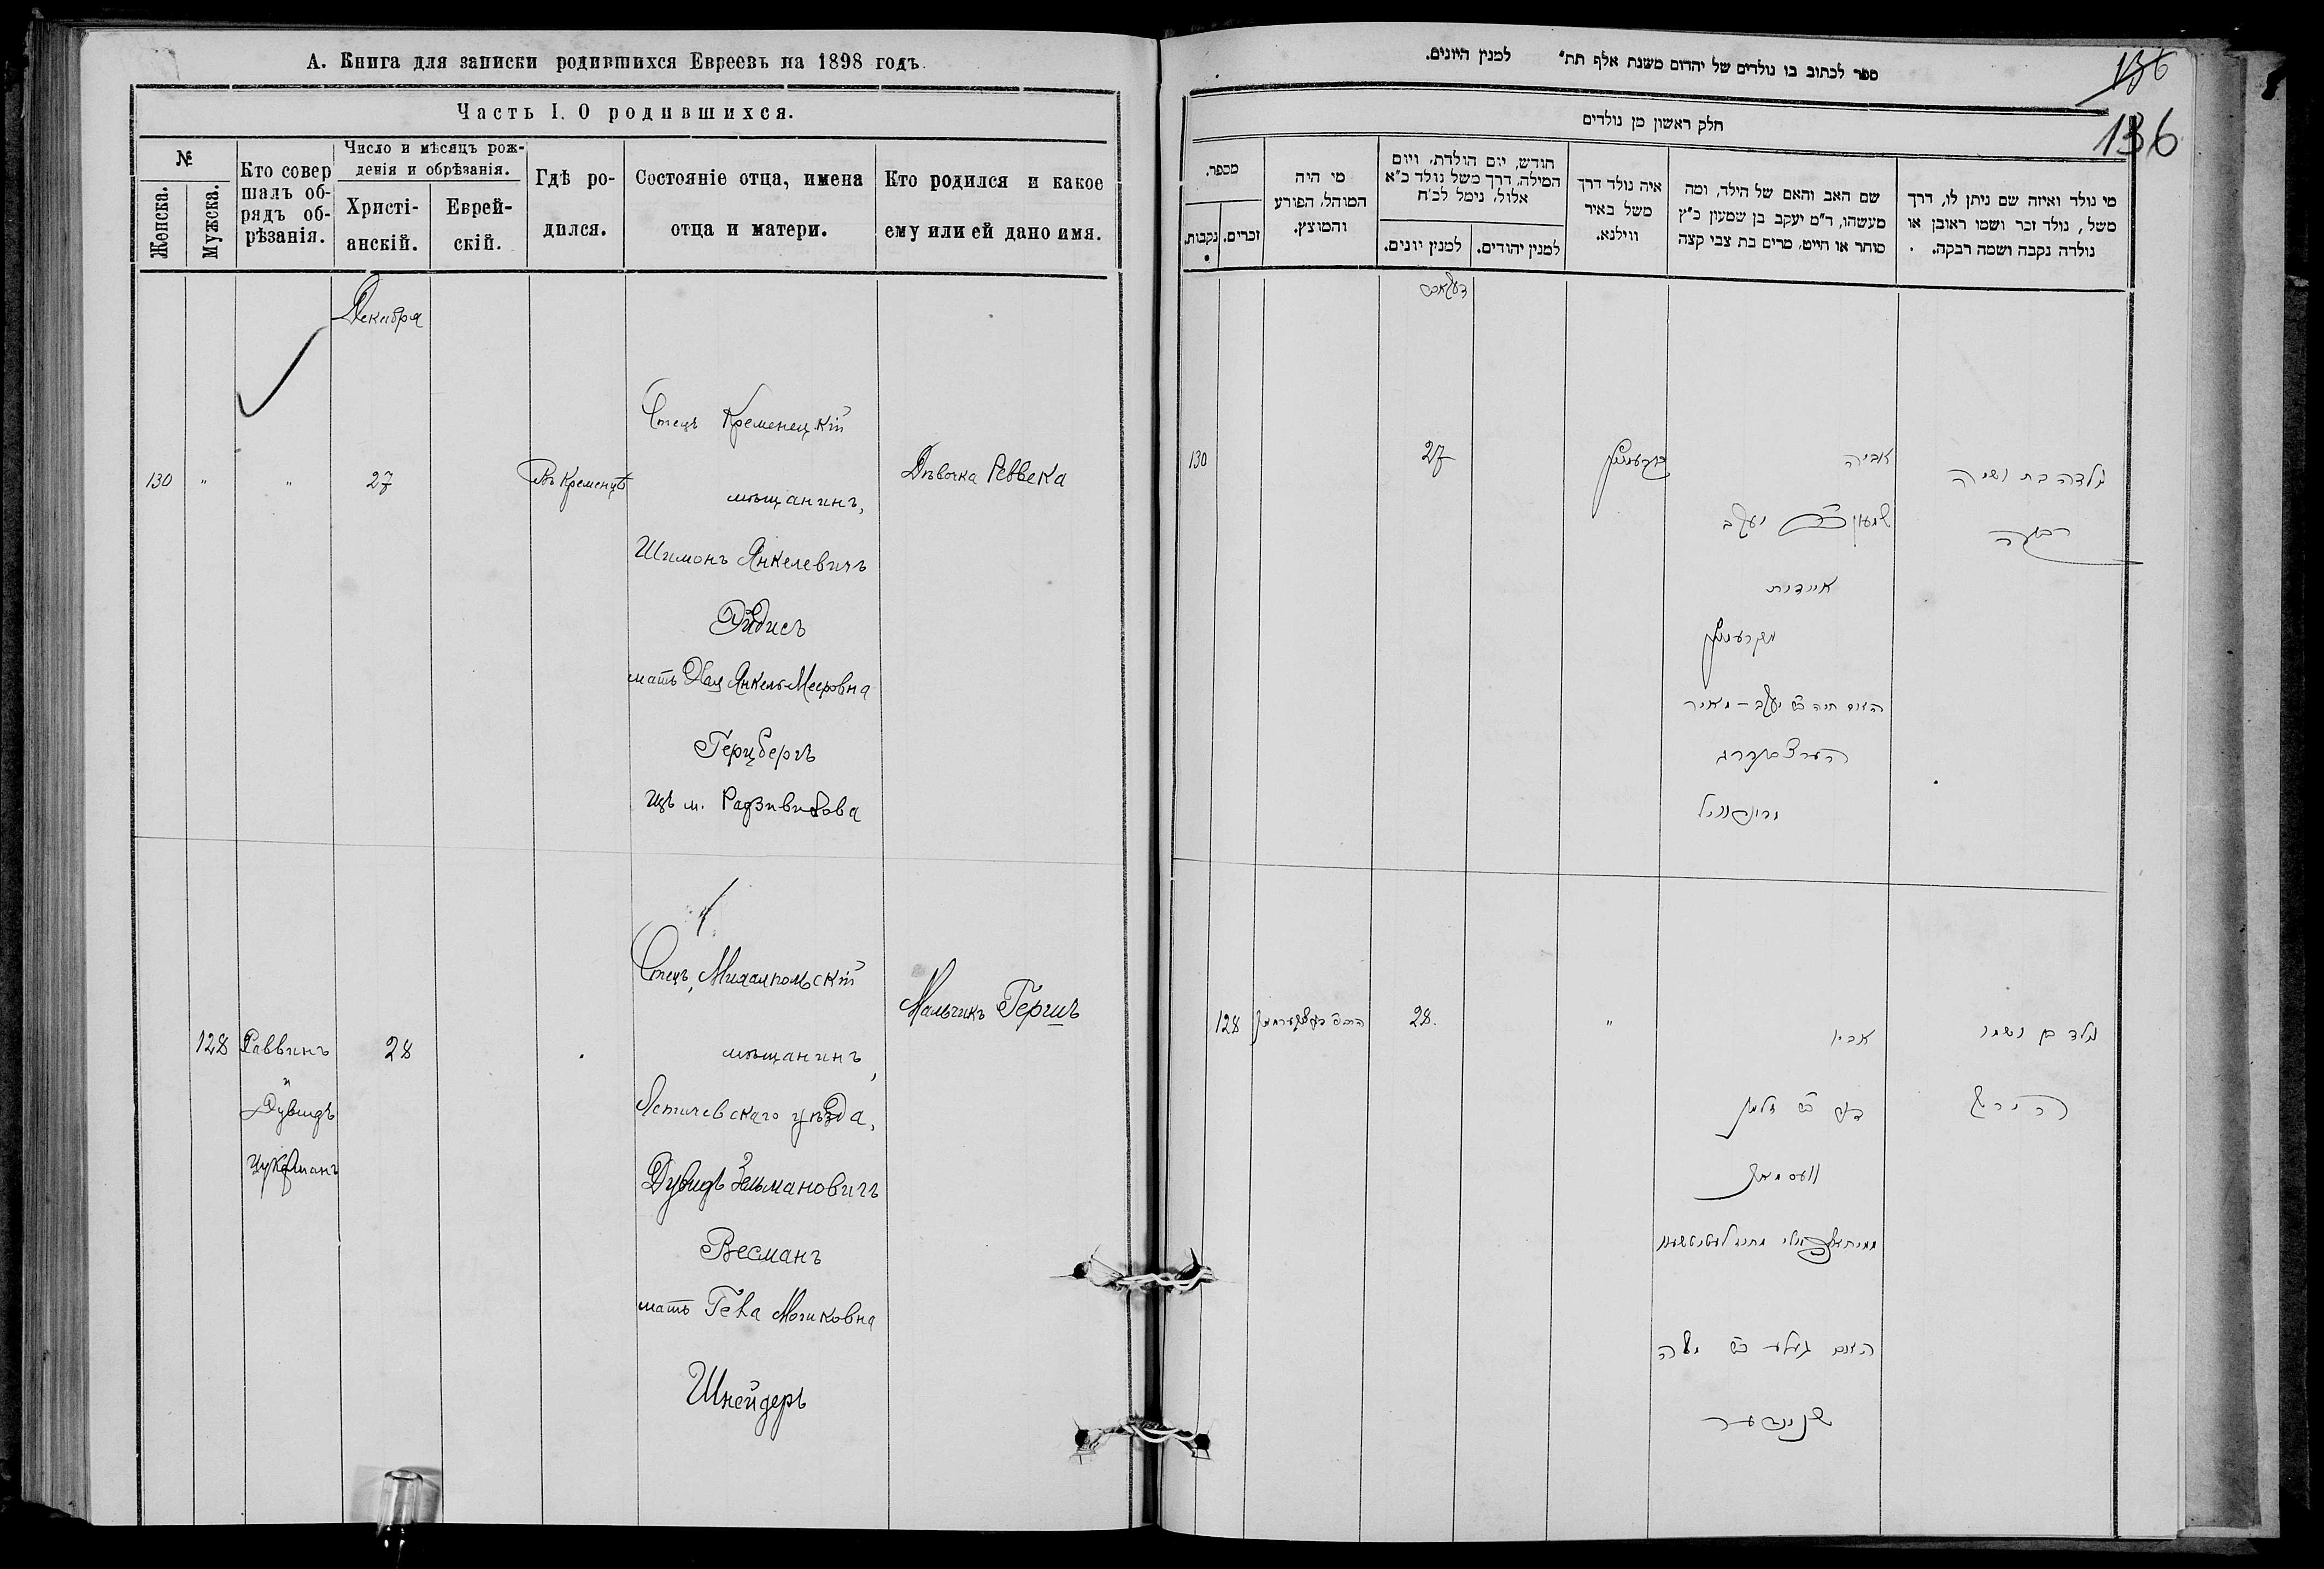 А. Книга для записки родившихся Евреевъ на 1898 годъ.
Часть I. О родившихся.
№
Женска.
Мужска.
Кто совер
шалъ об-
рядъ об-
рѣзанія.
Число и мѣсяцъ рож-
денія и обрѣзанія.
Христі-
анскій.
Еврей-
скій.
Гдѣ ро-
дился.
Состояніе отца, имена
отца и матери.
Кто родился и какое
ему или ей дано имя.
Декабря
130 " " 27 Въ Кременцѣ
Отецъ Кременецкій
мѣщанинъ,
Шимонъ Янкелевичъ
Эйдисъ
мать Хая Янкель-Мееровна
Герцбергъ
изъ м. Радзивилова
Дѣвочка Реввека
128 Раввинъ 28
и
Дувидъ
Цукерманъ
Отецъ, Михалпольскій
мѣщанинъ,
Летичевскаго уѣзда,
Дувидъ Зельмановичъ
Весманъ
мать Гела Мошковна
Шнейдеръ
Мальчикъ Гершъ
ספר לכתוב בו נולדים של יהדום משנת אלף תת״ למנין היונים.
136
136
חלק ראשון מן נולדים
מספר.
נקבות.
זכרים.
מי היה
המוהל, הפורע
והמוצץ.
חודש, יום הולדת, ויום
המילה, דרך משל נולד כ״א
אלול, נימל לכ״ח
למנין יונים.
למנין יהודים.
איה נולד דרך
משל באיר
ווילנא.
שם האב והאם של הילד, ומה
מעשהו, ד״מ יעקב בן שמעון כ״ץ
סוחר או חייט, מרים בת צבי קצה
מי נולד ואיזה שם ניתן לו, דרך
משל, נולד זכר ושמו ראובן או
נולדה נקבה ושמה רבקה.
130 27
אביה
שמעון יעקב
איידיס
מקרעמניץ
האם חיה בת יעקב – מאיר
הערצבערג
נולדה בת ושמה
רבקה
128 28. "
אביו
דוד בן זלמן
וועסמאן
האם געלע בת משה
שניידער
נולד בן ושמו
הירש